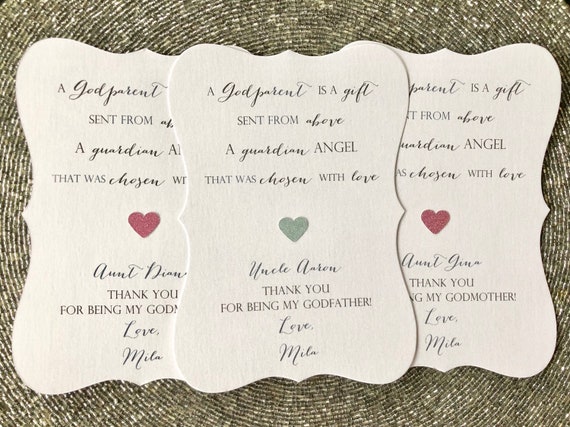 A Godparent
SENT FROM abo
A guardian A
THAT WAS chosen W
Aunt Dian
THANK YOU
FOR BEING MY GODM
Love,
Mila
A Godparent IS A gift
SENT FROM above
A guardian ANGEL
THAT WAS chosen WITH love
Uncle Aaron
THANK YOU
FOR BEING MY GODFATHER!
Love,
Mila
Godparent IS A gift
SENT FROM above
guardian ANGEL
WAS chosen WITH love
Aunt Gina
THANK YOU
BEING MY GODMOTHER!
Love,
Mila